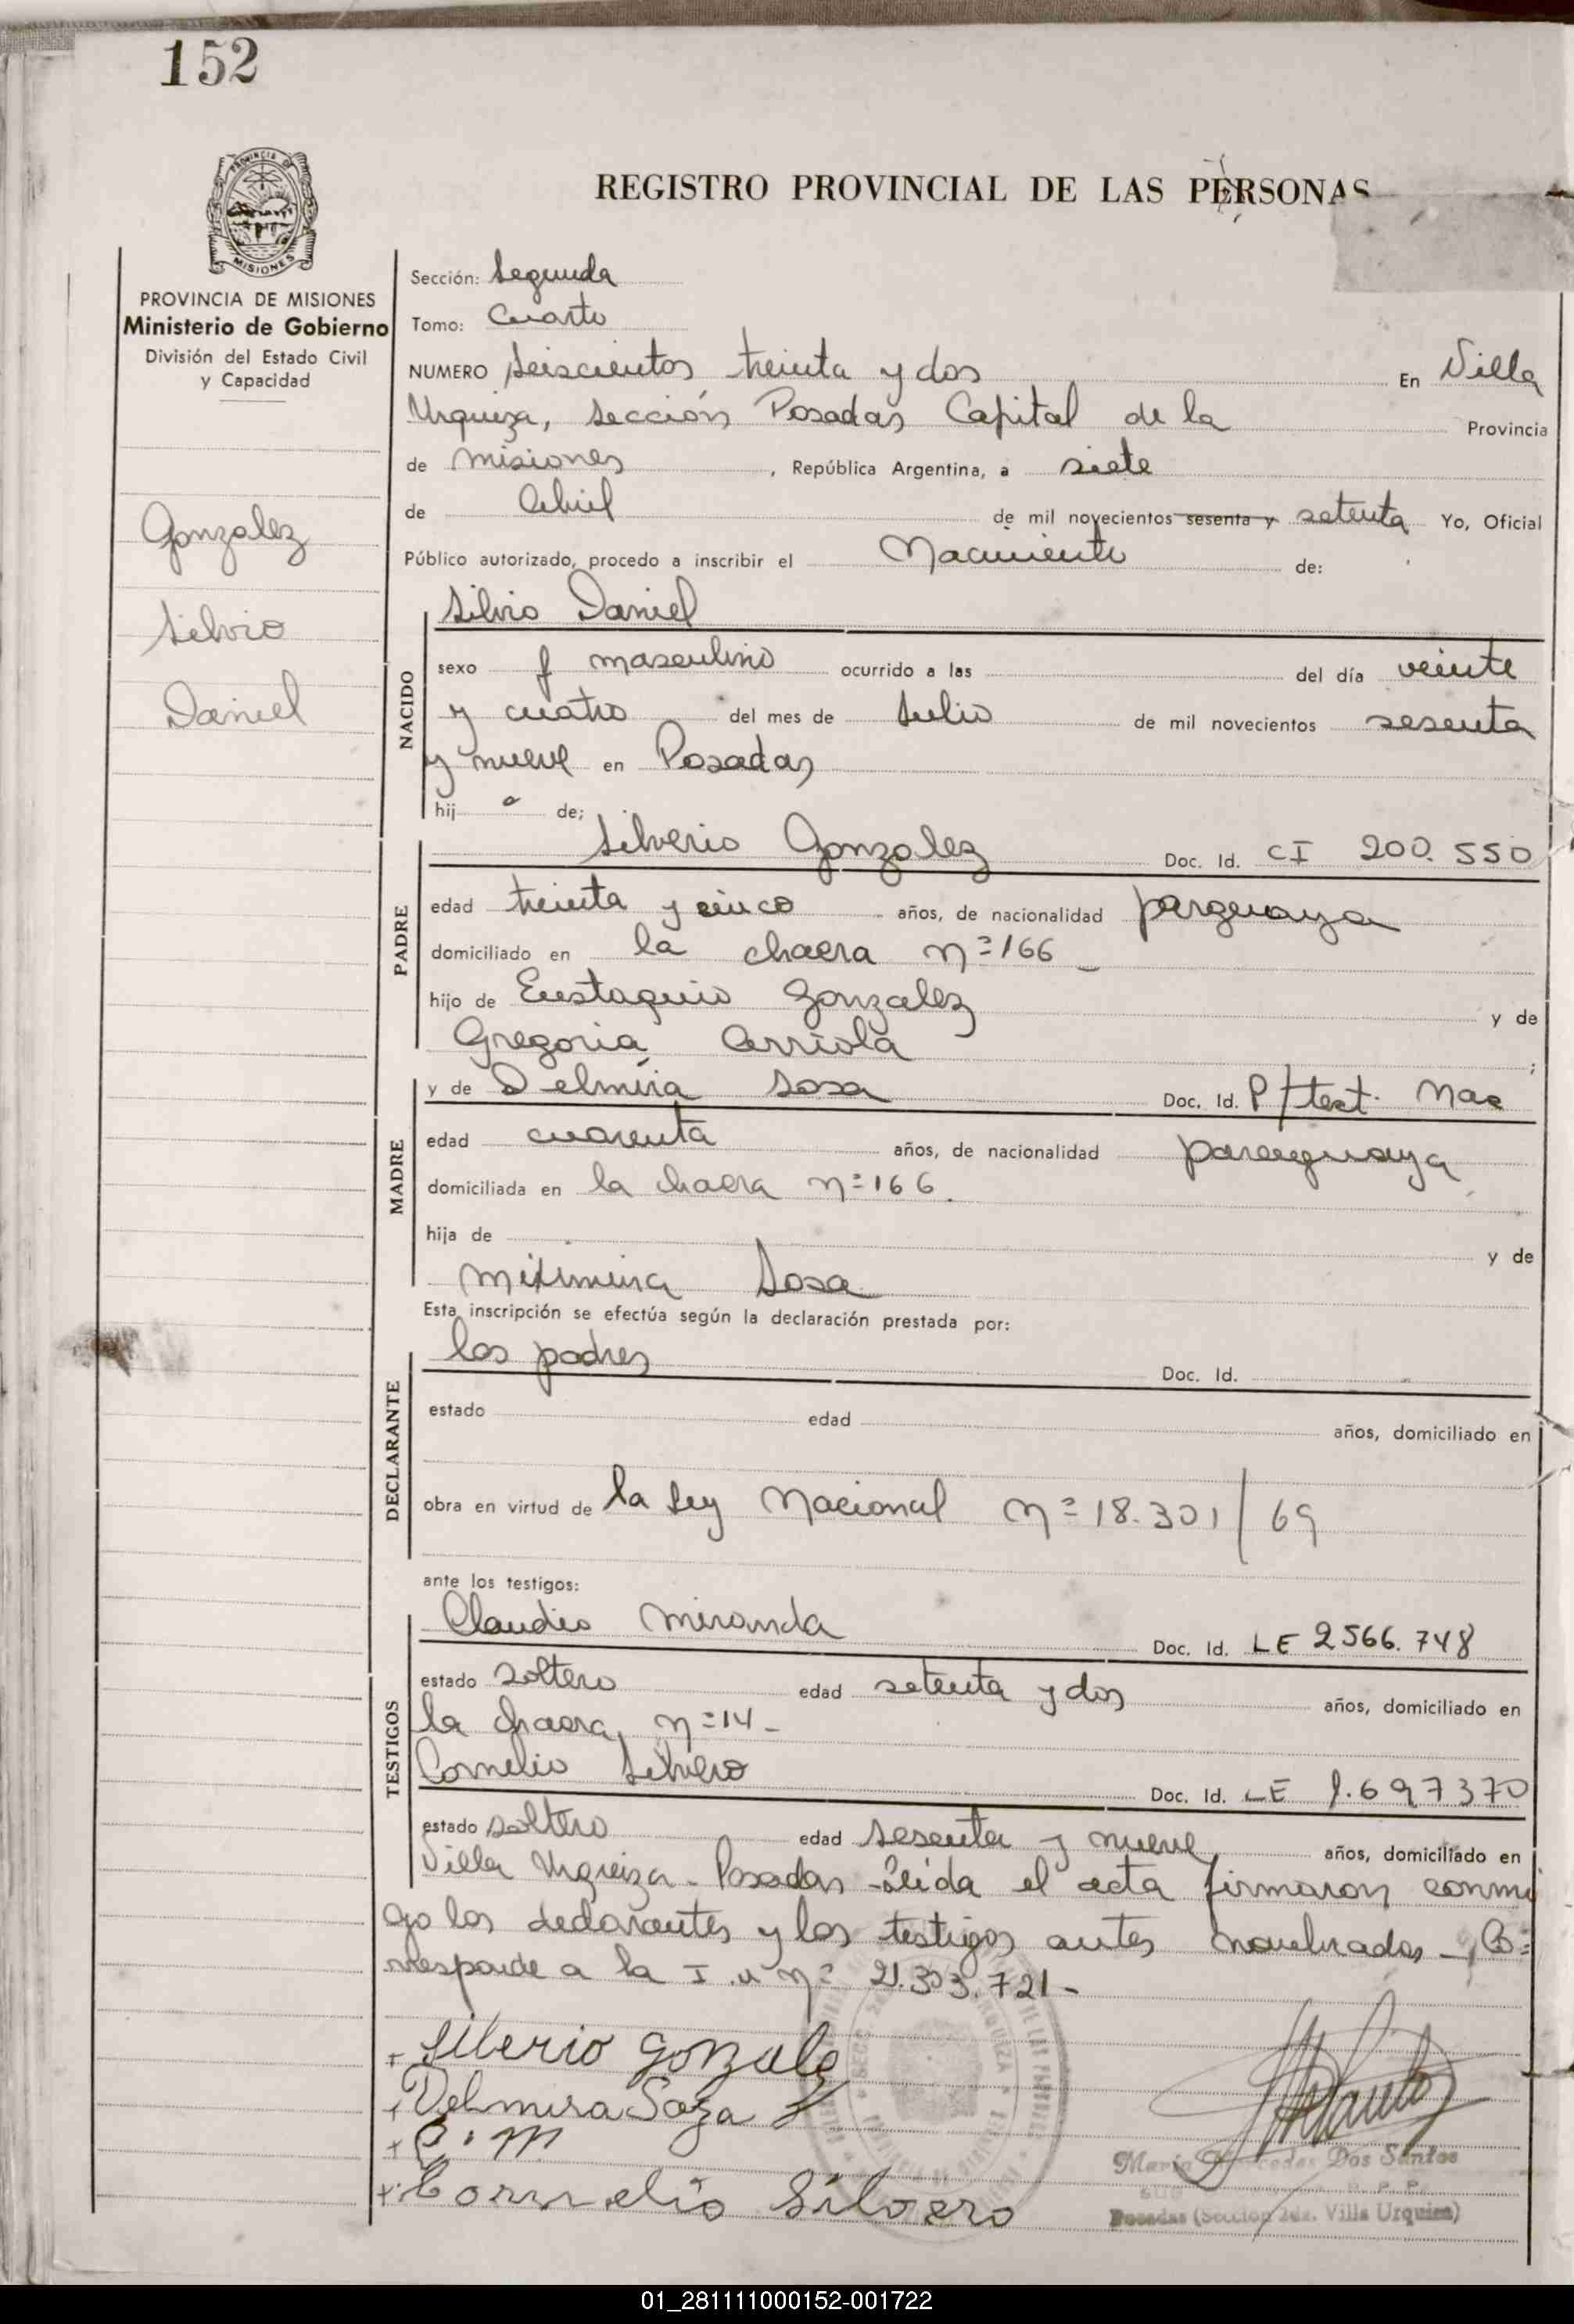 152
REGISTRO PROVINCIAL DE LAS PERSONAS
PROVINCIA DE
MISIONES
PROVINCIA DE MISIONES
Ministerio de Gobierno
División del Estado Civil
y Capacidad
Gonzalez
Silvio
Daniel
Sección: Segunda
Tomo: Cuarto
NUMERO seiscientos treinta y dos En Villa
Urquiza, sección Posadas Capital de la Provincia
de Misiones, República Argentina, a siete
de Abril de mil novecientos sesenta y setenta Yo, Oficial
Público autorizado, procedo a inscribir el Nacimiento de:
NACIDO
Silvio Daniel
sexo masculino ocurrido a las del día veinte
y cuatro del mes de Julio de mil novecientos sesenta
y nueve en Posadas
hij o de;
PADRE
Silverio Gonzalez Doc. Id. CI 200.550
edad treinta y cinco años, de nacionalidad parguaya
domiciliado en la chacra n=166
hijo de Eustaquio Gonzalez y de
Gregoria Arriola ;
MADRE
y de Delmira Sosa Doc. Id. P/test. Nac
edad cuarenta años, de nacionalidad paraguaya
domiciliada en la chacra n=166.
hija de y de
Sosa
Esta inscripción se efectúa según la declaración prestada por:
DECLARANTE
los padres Doc. Id.
estado edad años, domiciliado en
obra en virtud de la Ley Nacional n=18.301/69
ante los testigos:
TESTIGOS
Claudio Miranda Doc. Id. LE 2566.748
estado soltero edad setenta y dos años, domiciliado en
la chacra, n=14-
Cornelio Silvero Doc. Id. LE 1.697370
estado soltero edad sesenta y nueve, años, domiciliado en
Villa Urquiza - Posadas - Leida el acta firmaron conmi
go los declarantes y los testigos antes nombrados -, Co=
rresponde a la I.u n= 21.303.721-
+ Silverio Gonzale
+ Delmira Soza
+ C. M
+ Cornelio Silvero
Dos Santos
Posadas (Sección 2da. Villa Urquiza)
01_281111000152-001722